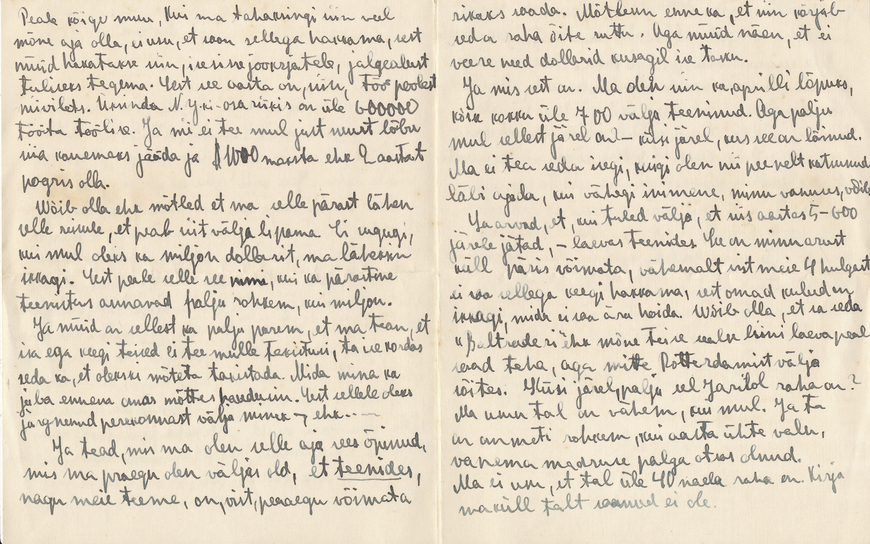 Peale kõige muu, kui ma tahaksingi siin veel
mõne aja olla, ei usu, et saan sellega hakkama, sest
nüüd hakatakse siin, ärajooksjatele, jälgealust
tuliseks tegema. Sest see aasta on, siin, töö poolest
niivilets. Üksinda N. Y.-ki-osariikis on üle 600000
tööta töölise. Ja mi ei tee mul just suurt lõbu
siia konemaks jääda ja $1000 maksta ehk 2 aastat
pogris olla.
Wõib olla ehk mõtled et ma selle pärast lähen
selle reisule, et pean siit välja lipsama Ei sugugi,
kui mul oleks ka miljon dollarit, ma läheksin
ikkagi. Sest peale selle see nimi, kui ka pärastine
teenistus annavad palju rohkem, kui miljon.
Ja nüüd on sellest ka palju parem, et ma tean, et
isa ega keegi teised ei tee mulle takistusi, ta ise kordas
seda ka, et oleks mõteta takistada. Mida mina ka
juba ennem omas mõttes Sest sellele oleks
järgnenud perekonnast välja minek – ehk.....
Ja tead, mis ma olen selle aja sees õpinud,
mis ma praegu olen väljas old, et teenides,
nagu meie teeme, on, vist, peaaegu võimata
rikaks saada. Mõtlesin enne ka, et siin kõrjab
seda raha õite ruttu. Aga nüüd näen, et ei
veere need dollarid kusagil ise tasku.
Ja mis sest on. Ma olen siin ka, aprilli lõpuks,
kõik kokku üle 700 välja teeninud. Aga palju
mul sellest järel on? – küsi järel, kus see on läinud.
Ma ei tea seda isegi, kuigi olen nii peenelt katsunud
läbi ajada, kui vähegi inimene, minu vanuses, võib
Ja arvad, et, kui tuled välja, et siis aastas 5-600
järele jätad, – laevas teenides See on minu arust
küll päris võimata, vähemalt vist meie 4 hulgast
ei saa sellega keegi hakkama, sest omad kulud on
ikkagi, mida ei saa ära hoida. Wõib olla, et sa seda
"Baltrader'i" ehk mõne teise saksa liini laeva peal
saad teha, aga mitte Rotterdamist välja
sõites. Küsi järel, palju sel Jaritol raha on?
Ma usun tal on vähem, kui mul. Ja ta
on ometi rohkem, kui aasta ühte valu,
vanema madruse palga otsas olnud.
Ma ei usu, et tal üle 40 naela raha on. Kirja
ma küll talt saanud ei ole.